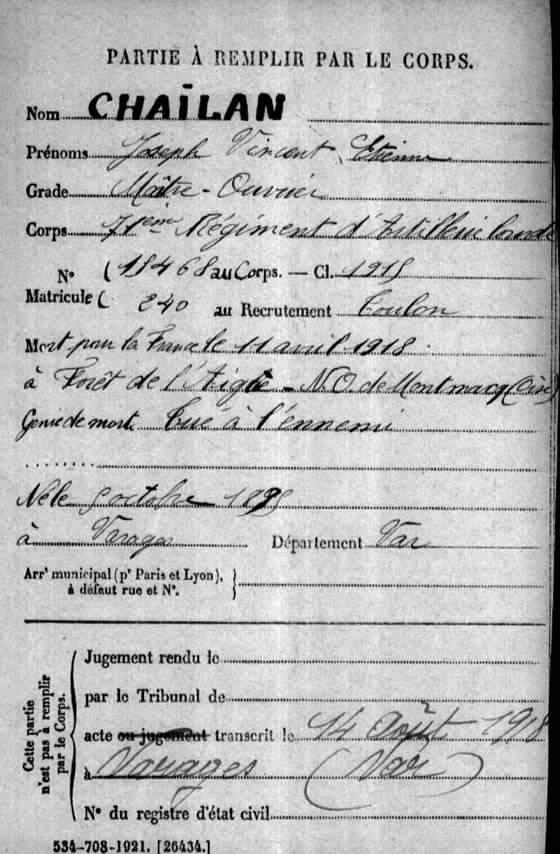 PARTIE À REMPLIR PAR LE CORPS.
Nom CHAÏLAN
Prénoms Joseph Vincent Etienne
Grade Maître-Ouvrier
Corps 71em Régiment d'Artillerie lourde
N° 18468 au Corps. — Cl. 1915
Matricule 240 au Recrutement Toulon
Mort pour la France le 11 avril 1918
à Forêt de l'Aigle - N.O. de Montmacq (Oise)
Genre de mort Tué à l'ennemi
Né le octobre 1895
à Varages Département Var
Arrt municipal (pr Paris et Lyon),
à défaut rue et N°.
Cette partie
n'est pas à remplir
par le Corps.
Jugement rendu le
par le Tribunal de
acte ou jugement transcrit le 14 Août 1918
à Varages (Var)
N° du registre d'état civil
534-708-1921. [26434.]